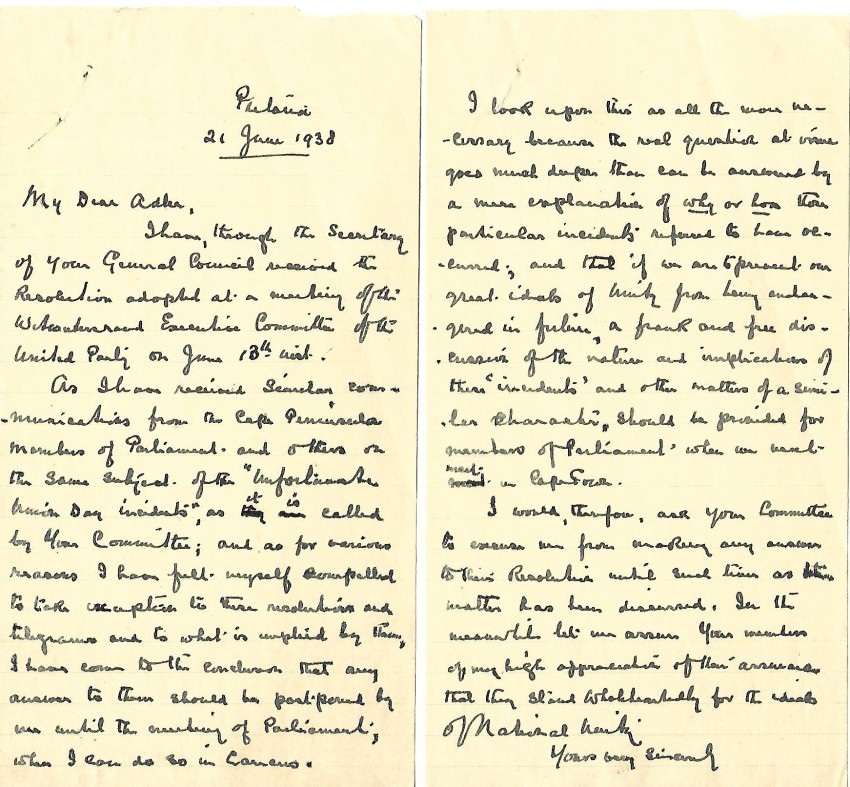 Pretoria
21 June 1938
My Dear Adler,
I have, through the Secretary
of Your General Council received the
Resolution adopted at a meeting of the
Witwatersrand Executive Committee of the
United Party on June 13th inst.
As I have received Similar com-
-munications from the Cape Peninsula
Members of Parliament and others on
the same subject of the "Unfortunate
Union Day incidents", as it is called
by Your Committee; and as for various
reasons I have felt myself compelled
to take exception to these resolutions and
telegrams and to what is implied by them,
I have come to the conclusion that any
answer to them should be postponed by
me until the meeting of Parliament,
when I can do so in Caucus.
I look upon this as all the more ne-
-cessary because the real question at issue
goes much deeper than can be answered by
a mere explanation of why or how those
particular incidents referred to have oc-
-curred; and that if we are to prevent our
great ideals of Unity from being endan-
-gered in future, a frank and free dis-
-cussion of the nature and implications of
these "incidents" and other matters of a simi-
-lar character, should be provided for
members of Parliament when we next
meet in Cape Town.
I would, therefore, ask Your Committee
to excuse me from making any answer
to their Resolution until such time as this
matter has been discussed. In the
meanwhile let me assure Your members
of my high appreciation of their assurance
that they stand wholeheartedly for the ideals
of National Unity.
Yours very Sincerely